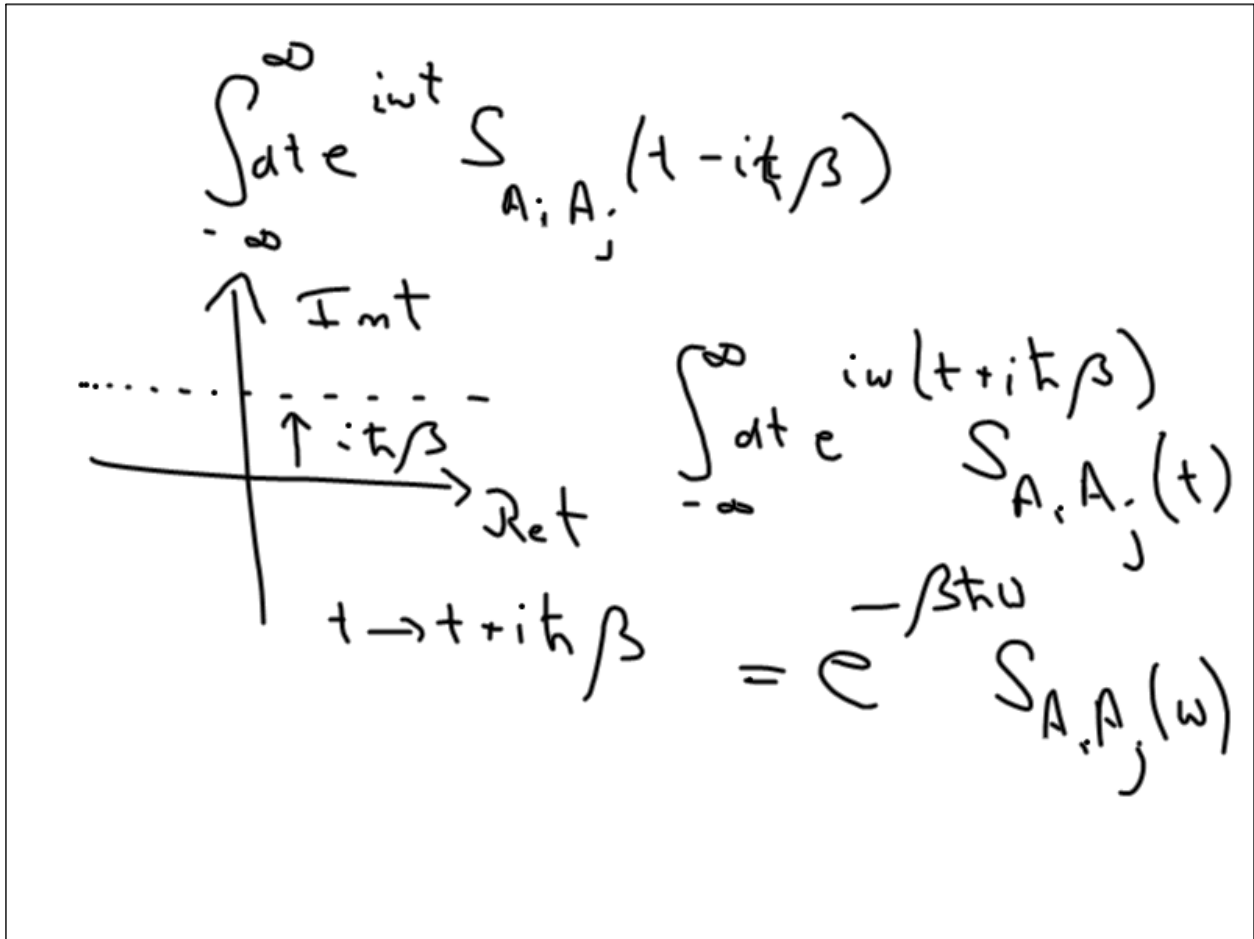 ∫_{-∞}^{∞} dt e^{iωt} S_{A_i A_j}(t - iħβ)
Im t
iħβ
Re t
t → t + iħβ
∫_{-∞}^{∞} dt e^{iω(t + iħβ)} S_{A_i A_j}(t)
= e^{-βħω} S_{A_i A_j}(ω)